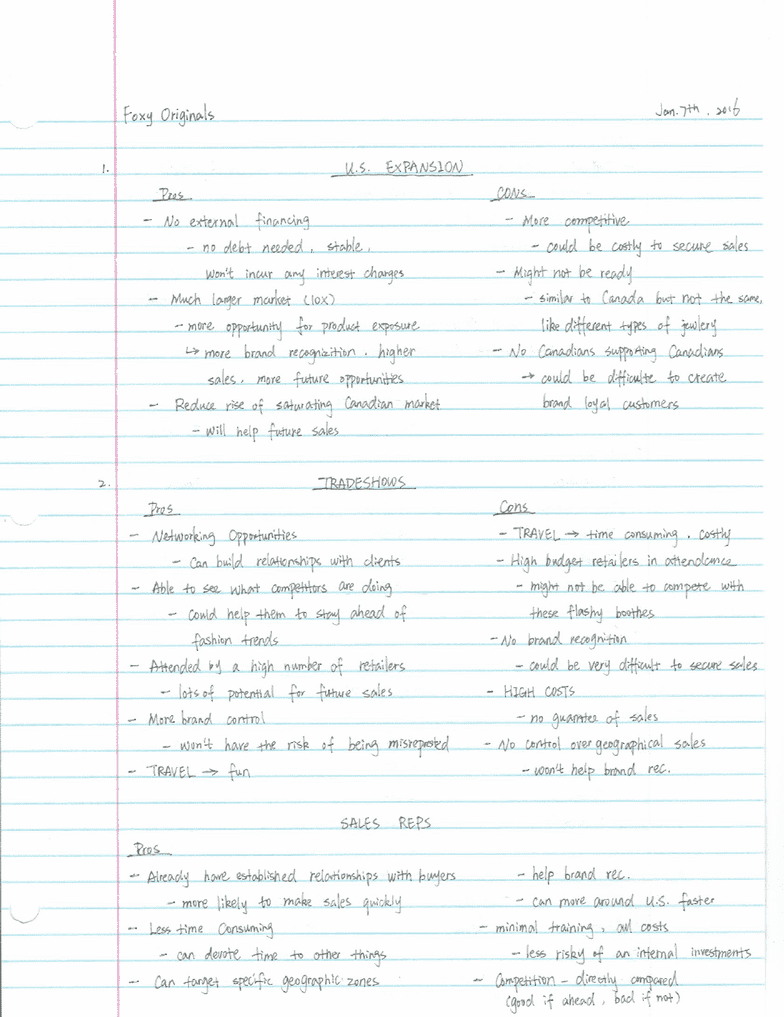 Foxy Originals
Jan. 7th. 2016
1.
U.S. EXPANSION
Pros
- No external financing
- no debt needed, stable,
won't incur any interest charges
- Much larger market (10x)
- more opportunity for product exposure
↳ more brand recognizition. higher
sales, more future opportunities
- Reduce rise of saturating Canadian market
- will help future sales
CONS
- More competitive
- could be costly to secure sales
- Might not be ready
- similar to Canada but not the same,
like different types of jewlery
- No Canadians supporting Canadians
→ could be difficulte to create
brand loyal customers
2.
TRADESHOWS
Pros
- Networking Opportunities
- Can build relationships with clients
- Able to see what competitors are doing
- Could help them to stay ahead of
fashion trends
- Attended by a high number of retailers
- lots of potential for future sales
- More brand control
- won't have the risk of being misrepreted
- TRAVEL → fun
Cons
- TRAVEL → time consuming. costly
- High budget retailers in attendance
- might not be able to compete with
these flashy boothes
- No brand recognition
- could be very difficult to secure sales
- HIGH COSTS
- no guarantee of sales
- No control over geographical sales
- won't help brand rec.
SALES REPS
Pros
- Already have established relationships with buyers
- more likely to make sales quickly
- Less time Consuming
- can devote time to other things
- Can target specific geographic zones
- help brand rec.
- can more around U.S. faster
- minimal training, costs
- less risky of an internal investments
- Competition - directly compared
(good if ahead, bad if not)